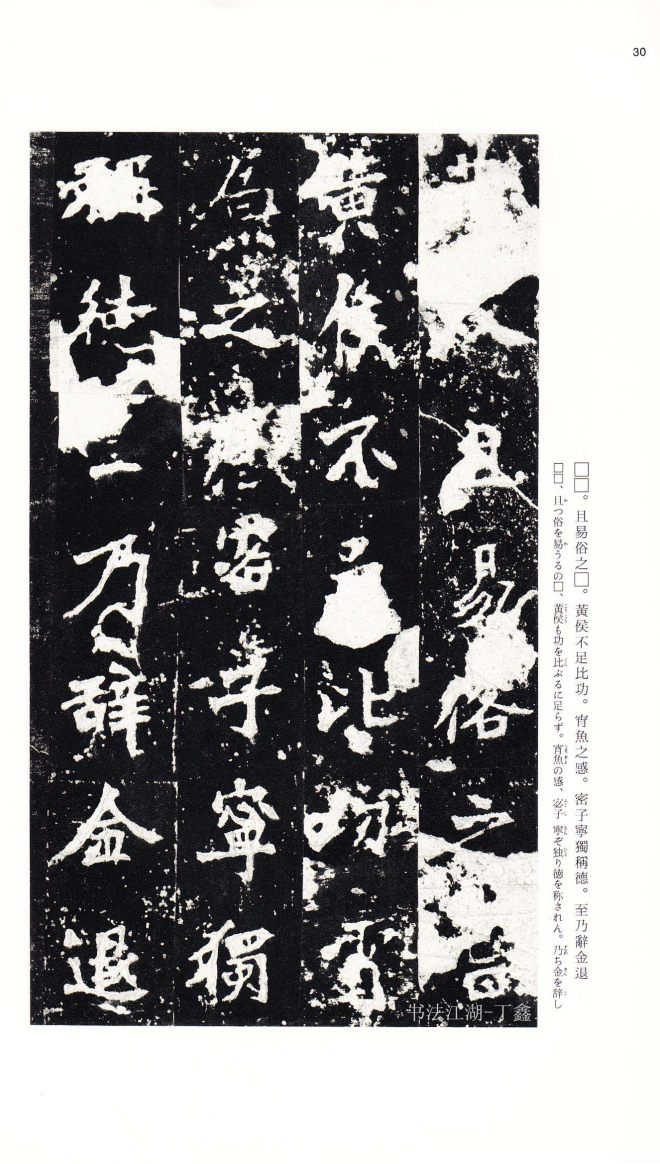 30
□□。且易俗之□。黃侯不足比功。宵魚之感。密子寧獨稱德。至乃辭金退
□□、且つ俗を易うるの□、黃侯も功を比ぶるに足らず。宵魚の感、宓子寧ぞ独り徳を称されん。乃ち金を辞し
且易俗之
黃侯不足比功宵
魚之感密子寧獨
稱德至乃辭金退
书法江湖-丁鑫